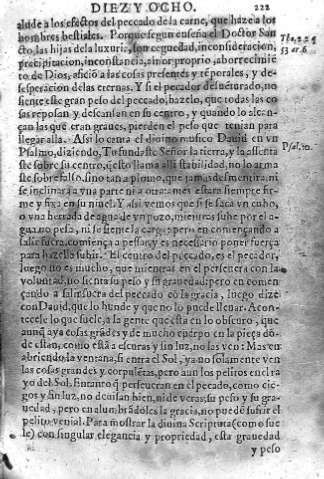 DIEZ Y OCHO. 222
alude a los efectos del peccado de la carne, que haze a los
hombres bestiales. Porque segun enseña el Doctor San
cto, las hijas de la luxuria, son ceguedad, inconsideracion,
precipitacion, inconstancia, amor proprio, aborrecimiẽ
to de Dios, aficiõ a las cosas presentes y tẽporales, y de-
sesperacion de las eternas. Y si el pecador desuẽturado, no
siente este gran peso del pecado, hazelo, que todas las co
sas reposan y descansan en su centro, y quando lo alcan-
çan las que eran graues, pierden el peso que tenian para
llegar alla. Assi lo canta el diuino musico Dauid en vn
Psal.
Psalmo, diziendo, Tu fundaste Señor la tierra, y la assenta
ste sobre su centro, q̃ esto llama alli stabilidad, no lo arma
ste sobre falso, sino tan a plomo, que jamas desmentira, ni
se inclinara a vna parte ni a otra, mas estara siempre fir-
me y fixa en su niuel. Y assi vemos que si se saca vn cubo,
o vna herrada de agua de vn pozo, mientras sube por el a-
gua no pesa, ni se siente la carga: pero en començando a
salir fuera, comiença a pesar, y es necessario poner fuerça
para hazella subir. El centro del peccado, es el pecador,
luego no es mucho, que mientras en el perseuera con la
voluntad, no sienta su peso y su grauedad: pero en comen
çando a salir fuera del peccado cõ la gracia, luego dize
con Dauid, que lo hunde y que no lo puede lleuar. Acon-
tecele lo que suele a la gente que està en lo obscuro, que
aunq̃ aya cosas grãdes y de mucho cuerpo en la pieça dõ-
de estan, como està a escuras y sin luz, no las ven: Mas en
abriendo la ventana, si entra el Sol, ya no solamente ven
las cosas grandes y corpulẽtas, pero aun los peliros en el ra
yo del Sol. Entanto q̃ perseueran en el pecado, como cie-
gos y sin luz, no deuisan bien, ni de veras, su peso y su gra
uedad, pero en alumbrãdoles la gracia, no puede sufrir el
pelito venial. Para mostrar la diuina Scriptura (como sue
le) con singular elegancia y propriedad, esta grauedad
y peso